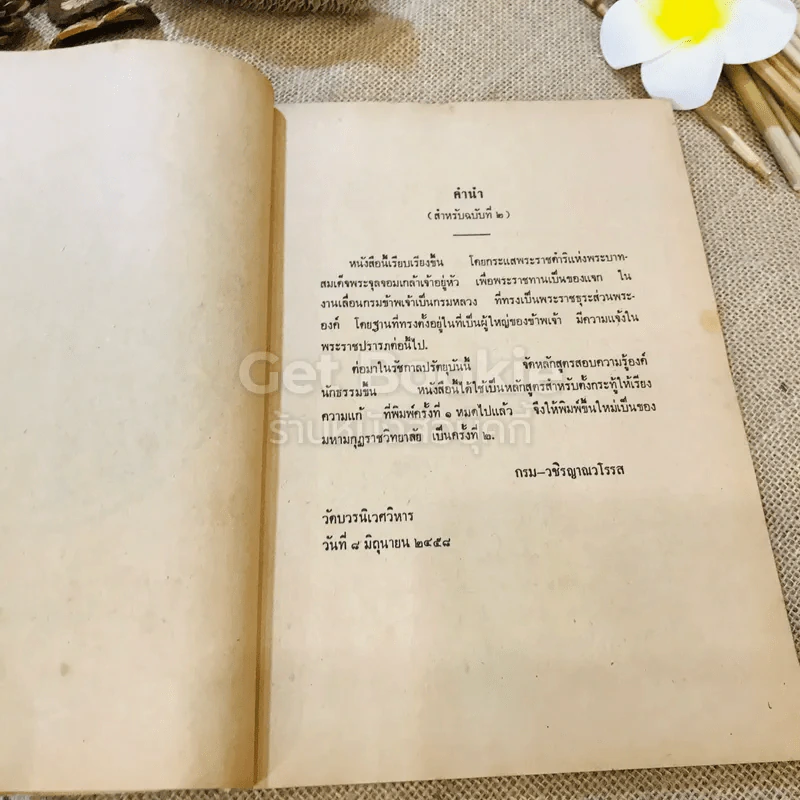 คำนำ
(สำหรับฉบับที่ ๒)
หนังสือนี้เรียบเรียงขึ้น โดยกระแสพระราชดำริแห่งพระบาท-
สมเด็จพระจุลจอมเกล้าเจ้าอยู่หัว เพื่อพระราชทานเป็นของแจก ใน
งานเลื่อนกรมข้าพเจ้าเป็นกรมหลวง ที่ทรงเป็นพระราชธุระส่วนพระ-
องค์ โดยฐานที่ทรงตั้งอยู่ในที่เป็นผู้ใหญ่ของข้าพเจ้า มีความแจ้งใน
พระราชปรารภต่อนี้ไป.
ต่อมาในรัชกาลปรัตยุบันนี้ จัดหลักสูตรสอบความรู้องค์
นักธรรมขึ้น หนังสือนี้ได้ใช้เป็นหลักสูตรสำหรับตั้งกระทู้ให้เรียง
ความแก้ ที่พิมพ์ครั้งที่ ๑ หมดไปแล้ว จึงให้พิมพ์ขึ้นใหม่เป็นของ
มหามกุฏราชวิทยาลัย เป็นครั้งที่ ๒.
กรม–วชิรญาณวโรรส
วัดบวรนิเวศวิหาร
วันที่ ๘ มิถุนายน ๒๔๕๘
Get Booki
ร้านหนังสือบุ๊คกี้